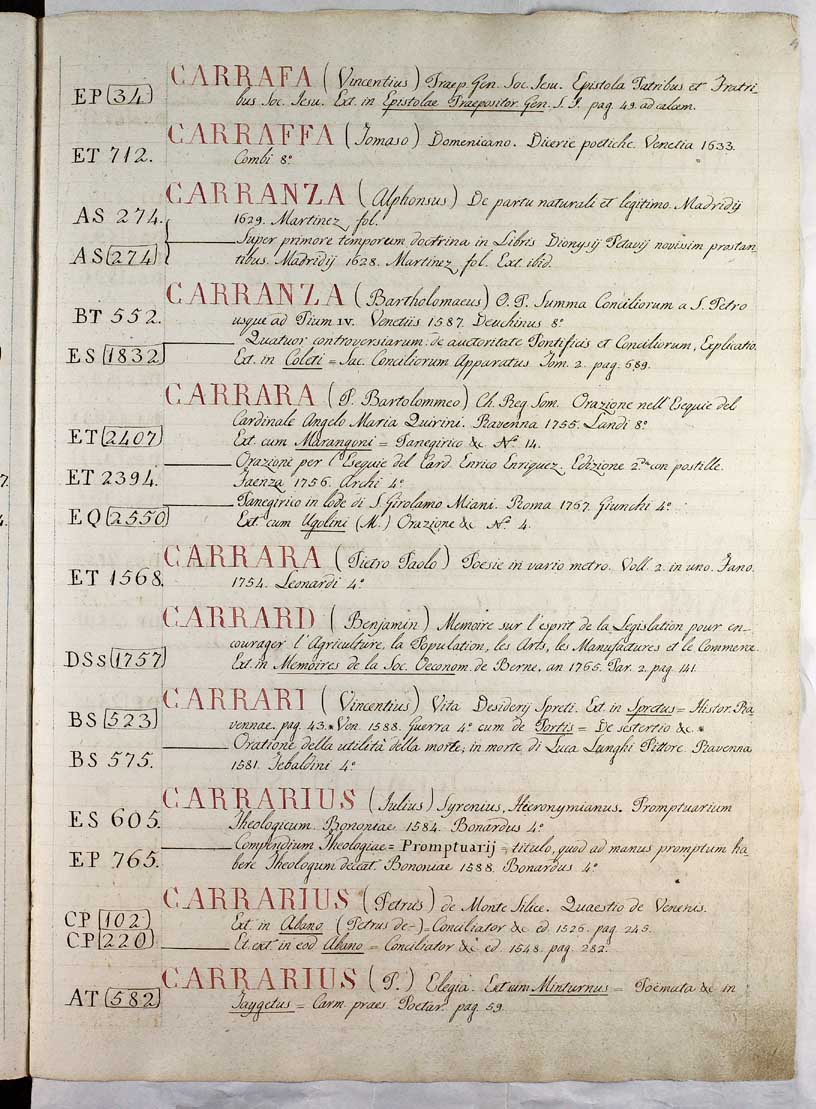 CARRAFA (Vincentius) Praep. Gen. Soc. Jesu. Epistola Patribus et Fratri-
EP 34 bus Soc. Jesu. Ext. in Epistolae Praepositor. Gen. S. J. pag. 49. ad calcem.
CARRAFFA (Tomaso) Domenicano. Dicerie poetiche. Venetia 1633.
ET 712. Combi 8.º
CARRANZA (Alphonsus) De partu naturali et legitimo. Madridij
AS 274. 1629. Martinez fol.
Super primore temporum doctrina in Libris Dionysij Petavij novissim prostan
AS 274 tibus. Madridij 1628. Martinez fol. Ext. ibid.
CARRANZA (Bartholomaeus) O. P. Summa Conciliorum a S. Petro
BT 552. usque ad Pium IV. Venetiis 1587. Deuchinus 8.º
Quatuor controversiarum: de auctoritate Pontificis et Conciliorum, Explicatio.
ES 1832 Ext. in Coleti = Sac. Conciliorum Apparatus. Tom. 2. pag. 689.
CARRARA (P. Bartolommeo) Ch. Reg. Som. Orazione nell'Esequie del
Cardinale Angelo Maria Quirini. Ravenna 1755. Landi 8.º
ET 2407 Ext. cum Marangoni = Panegirico &c. N.º 14.
Orazione per l'Esequie del Card. Enrico Enriquez. Edizione 2.da con postille.
ET 2394. Faenza 1756. Archi 4.º
Panegirico in lode di S. Girolamo Miani. Roma 1767. Giunchi 4.º
EQ 2550 Ext. cum Ugolini (M.) Orazione &c. N.º 4.
CARRARA (Pietro Paolo) Poesie in vario metro. Voll. 2. in uno. Fano.
ET 1568. 1754. Leonardi 4.º
CARRARD (Benjamin) Memoire sur l'esprit de la Legislation pour en-
courager l'Agriculture, la Population, les Arts, les Manufactures et le Commerce.
DSs 1757 Ext. in Memoires de la Soc. Oeconom. de Berne, an 1765. Par. 2. pag. 141.
CARRARI (Vincentius) Vita Desiderij Spreti. Ext. in Spretus = Histor. Ra-
BS 523 vennae. pag. 43. * Ven. 1588. Guerra 4.º cum de Portis = De sestertio &c. *
Oratione della utilità della morte, in morte di Luca Lunghi Pittore. Ravenna
BS 575. 1581. Tebaldini 4.º
CARRARIUS (Iulius) Syrenius, Hieronymianus. Promptuarium
ES 605. Theologicum. Bononiae 1584. Bonardus 4.º
Compendium Theologiae = Promptuarij = titulo, quod ad manus promptum ha-
EP 765. bere Theologum deceat. Bononiae 1588. Bonardus 4.º
CARRARIUS (Petrus) de Monte Silice. Quaestio de Venenis.
CP 102 Ext. in Abano (Petrus de-) = Conciliator &c. ed. 1526. pag. 245.
CP 220 Et ext. in eod. Abano = Conciliator &c. ed. 1548. pag. 282.
CARRARIUS (P.) Elegia. Ext. cum Minturnus = Poëmata &c. in
AT 582 Taygetus = Carm. praes. Poetar. pag. 59.